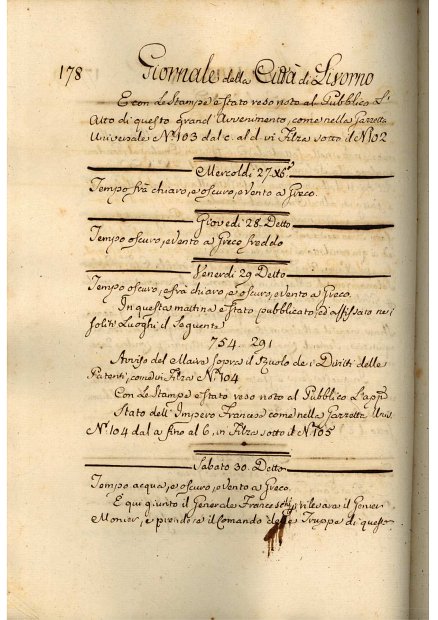 178 Giornale della Città di Livorno
E con le Stampe è stato reso noto al Pubblico l'
Atto di questo grand'Avvenimento, come nella Gazzetta
Universale N.º 103 dal c. al d. vi Filza sotto il N.º 102
Mercoldì 27 Xbre
Tempo frà chiaro, e oscuro, e vento a Greco.
Giovedì 28 Detto
Tempo oscuro, e vento a Greco freddo
Venerdì 29 Detto
Tempo oscuro, e frà chiaro, e oscuro, e vento a Greco.
In questa mattina è stato pubblicato, ed affissato nei
soliti Luoghi il seguente
754. 291
Avviso del Maire sopra il Ruolo dei Diritti delle
Patenti, come vi Filza N.º 104
Con le Stampe è stato reso noto al Pubblico
Stato dell'Impero Francese come nella Gazzetta Univ.
N.º 104 dal a fino al 6, in Filza sotto il N.º 105
Sabato 30. Detto
Tempo acqua, e oscuro, e vento a Greco.
E qui giunto il Generale Franceschi, rilevare il Gener
Monier, e prendere il Comando delle Truppe di queste